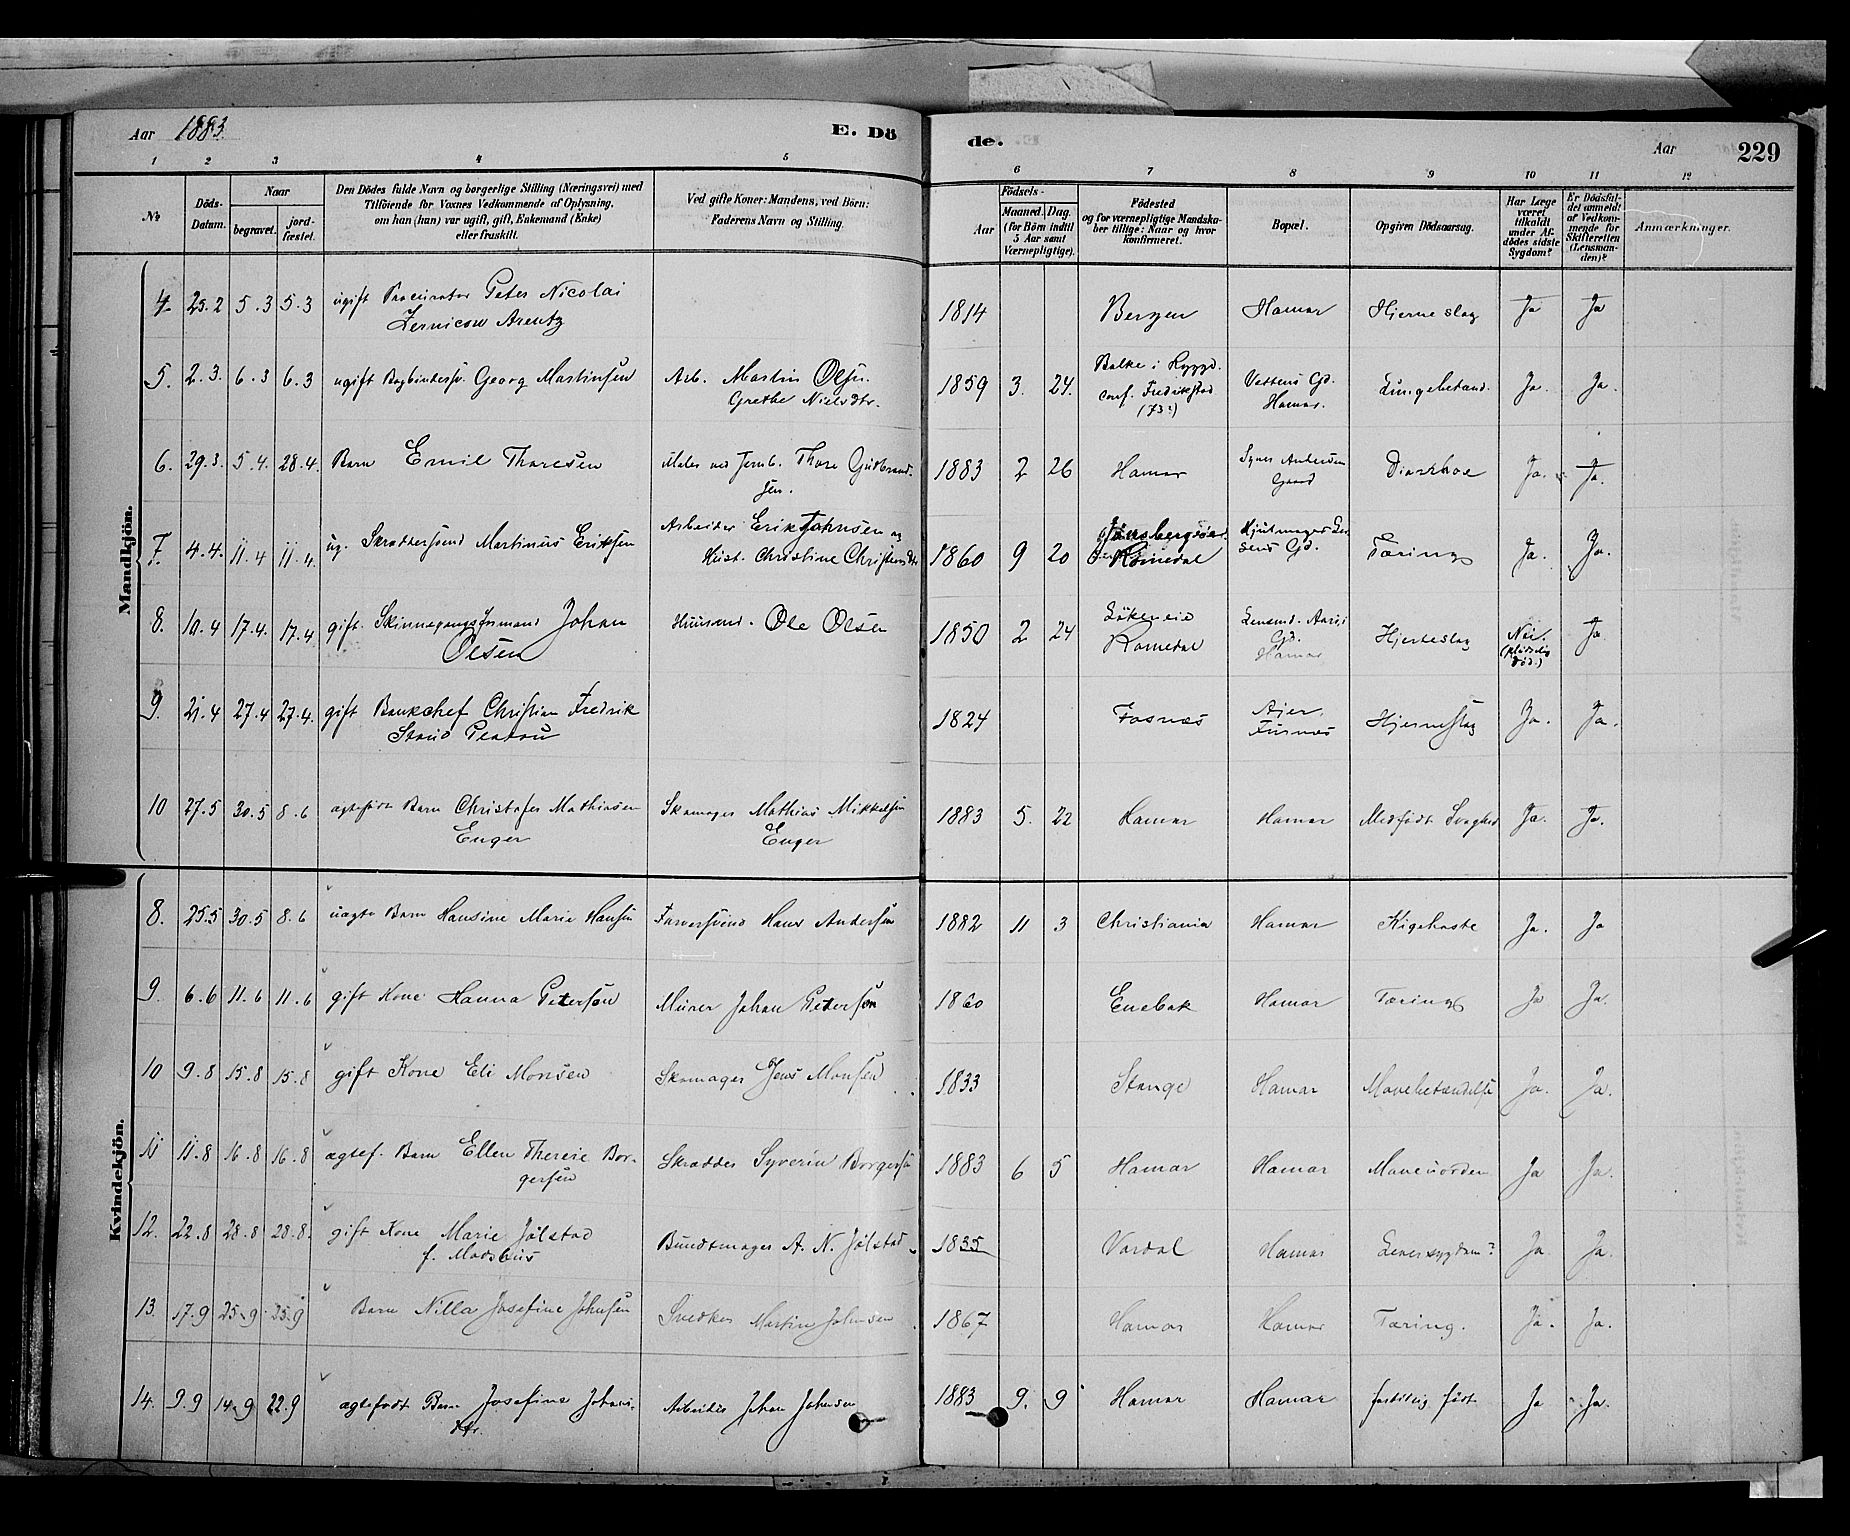 Aar 1883.
E. Dö
de.
Aar
229
1 2 3 4 5 6 7 8 9 10 11 12
No
Döds-Datum.
Naar
begravet.
jordfæstet.
Den Dödes fulde Navn og borgerlige Stilling (Næringsvei) med
Tilföiende for Voxnes Vedkommende af Oplysning,
om han (hun) var ugift, gift, Enkemand (Enke)
eller fraskilt.
Ved gifte Koner: Mandens, ved Börn:
Faderens Navn og Stilling.
Födsels-
Aar
Maaned. Dag.
(for Börn indtil
5 Aar samt
Værnepligtige).
Födested
og for værnepligtige Mandska-
ber tillige: Naar og hvor
konfirmeret.
Bopæl.
Opgiven Dödsaarsag.
Har Læge
været
tilkaldt
under Af-
dödes sidste
Sygdom?
Er Dödsfal-
det anmeldt
af Vedkom-
mende for
Skifteretten
(Lensman-
den)?
Anmærkninger.
Mandkjön.
4. 25.2 5.3 5.3 ugift Procurator Peter Nicolai
Zernicow Arentz
1814 Bergen Hamar Hjerneslag Ja Ja
5. 2.3. 6.3 6.3 ugift Bogbindersv. Georg Martinsen Arb. Martin Olsen
Grethe Nielsdtr.
1859 3. 24. Balke i Rygge
conf. Fredrikstad
(73?)
Gd.
Hamar. Lungebetænd. Ja. Ja.
6. 29.3. 5.4. 28.4. Barn Emil Thoresen Maler ved Jernb. Thore Gudbrand-
sen.
1883 2 26 Hamar Andersen
Gaard Diarrhoe Ja. Ja.
7. 4.4. 11.4 11.4. ug. Skræddersvend Martinus Eriksen Arbeider Erik Johnsen og
Hust. Christine Christensdtr
1860 9 20 Romedal Gd. Tæring Ja. Ja.
8. 10.4 17.4. 17.4 gift. Skinnegangsformand Johan
Olsen
Husmd. Ole Olsen
1850 2 24 Romedal Gd.
Hamar Hjerteslag Nei.
(pludselig
død.) Ja
9. 21.4 27.4 27.4. gift Bankchef Christian Fredrik
Stoud Platou
1824 Fosnæs Ajer,
Furnæs Hjerneslag Ja. Ja.
10 27.5 30.5 8.6 ægtefødt Barn Christofer Mathiasen
Enger
Skomager Mathias Mikkelsen
Enger
1883 5. 22 Hamar Hamar Medfödt Svaghed Ja. Ja.
Kvindekjön.
8. 25.5 30.5 8.6 uægte Barn Hansine Marie Hansen Farversvend Hans Andersen
1882 11 3 Christiania Hamar Kighoste Ja. Ja
9. 6.6 11.6 11.6 gift Kone Hanna Petersen Murer Johan Petersen
1860 Enebak Hamar Tæring Ja Ja.
10 9.8 15.8 15.8 gift Kone Eli Monsen Skomager Jens Monsen
1833 Stange Hamar Mavebetændelse Ja. Ja.
11 11.8 16.8 16.8 ægtef. Barn Ellen Therese Bor-
gersen
Skrædder Syverin Borgersen
1883 6 5 Hamar Hamar Maveuorden Ja Ja.
12. 22.8 28.8 28.8. gift Kone Marie Jølstad
f. Madshus
Bundtmager A. N. Jølstad
1835 Vardal Hamar Leversygdom? Ja Ja.
13. 17.9 25.9 25.9 Barn Nilla Josefine Johnsen Snedker Martin Johnsen
1867 Hamar Hamar Tæring. Ja. Ja.
14. 9.9 14.9 22.9 ægtefødt Barn Josefine Johans-
dtr.
Arbeider Johan Johnsen
1883 9. 9 Hamar Hamar fortidlig född Ja Ja.